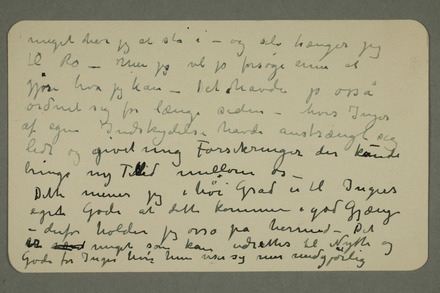 meget har jeg at stå i – og selv trænger jeg
til Ro – men jeg vil jo forsøge ennu at
gjøre hva jeg kan – Det havde jo også
ordnet sig for længe siden – hvis Inger
af egen Indskydelse havde anstrængt sig
lidt og givet mig Forsikringer der kunde
bringe ny Tillid mellom os –
Dette mener jeg i høi Grad er til Ingers
eget Gode at dette kommer i god Gjænge
– derfor holder jeg også på hermed – Det
er meget som kan udrettes til Nytte og
Gode for Inger hvis hun viser sig mer medgjørlig